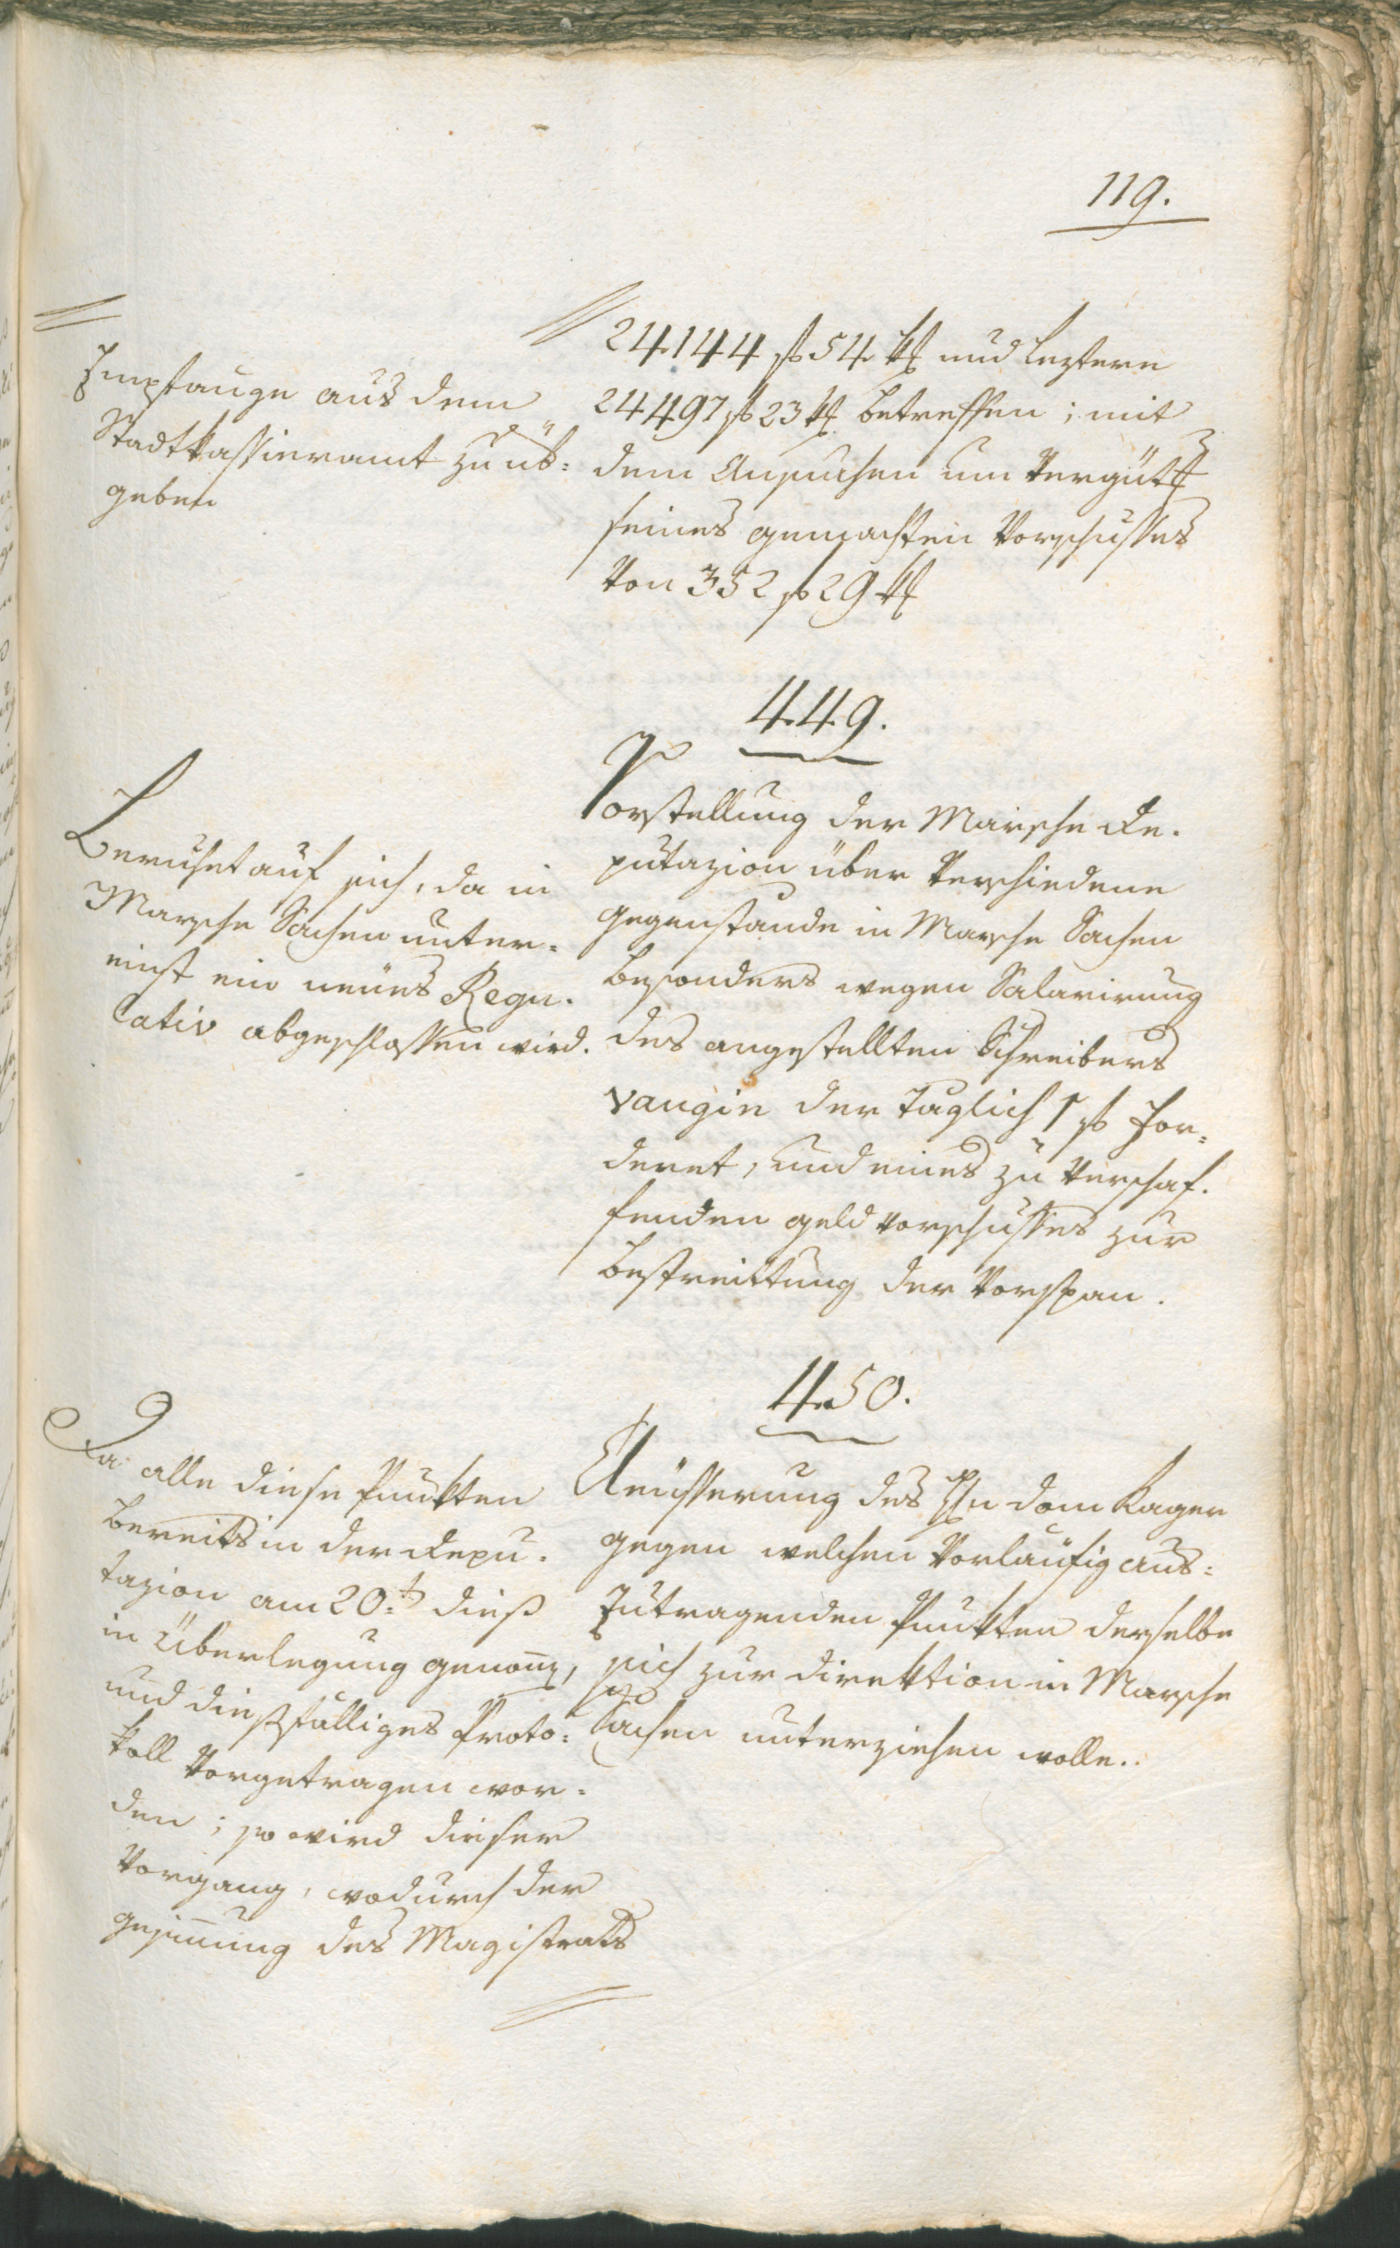 119.
Empfange aus dem
Stadtkassieramt zu üb-
geben
24144 f 54 kr und leztere
24497 f 23 kr betreffen; mit
dem Ansuchen um Vergütg
seines gemachten Vorschusses
von 352 f 29 kr
449.
Beruhet auf sich, da in
Marsche Sachen unter-
einst ein neües Regu-
lativ abgeschlossen wird.
Vorstellung der Marsche De-
putazion über verschiedene
gegenstände in Marsche Sachen
besonders wegen Salarirung
des angestellten Schreibers
Vaugin der täglich 1 f for-
deret, und eines zu verschaf-
fenden geld vorschusses zur
Bestreittung der Vorspan.
450.
Da alle diese Punkten
bereits in der Depu-
tazion am 20.t dieß
in Überlegung genom̅,
und dießfälliges Proto-
koll vorgetragen wor-
den; so wird dieser
Vorgang, wodurch der
gesin̅ung des Magistrats
Aeüsserung des Hn dom Kager
gegen welchen vorläufig aus-
zutragenden Punkten derselbe
sich zur direktion in Marsche
Sachen unterziehen wolle..